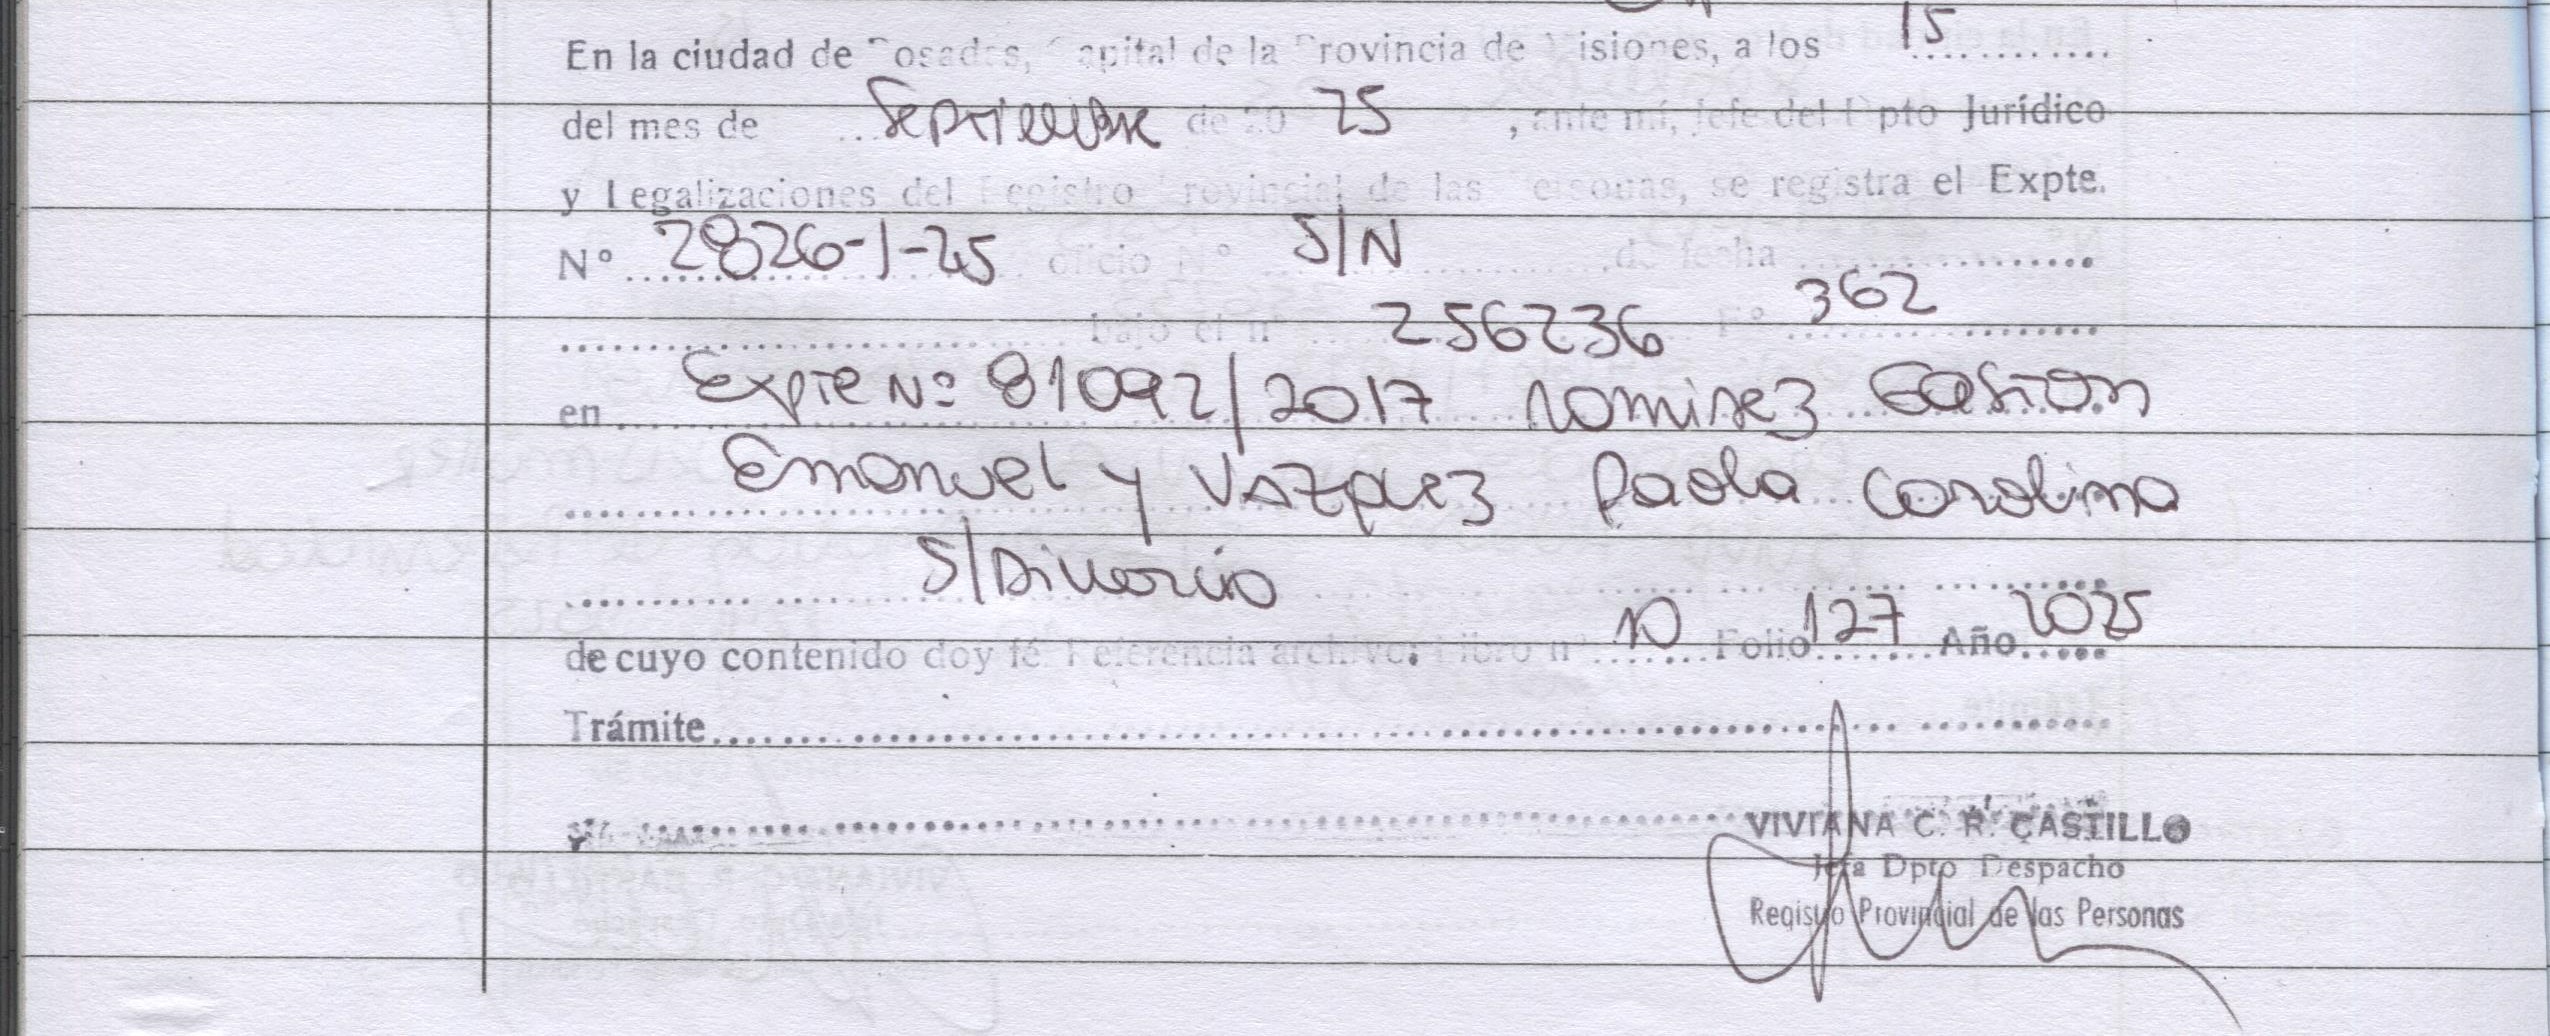 En la ciudad de Posadas, Capital de la Provincia de Misiones, a los 15
del mes de Septiembre de 20 25, ante mí, jefe del Dpto Jurídico
y Legalizaciones del Registro Provincial de las Personas, se registra el Expte.
Nº 2826-1-25 oficio Nº S/N de fecha
bajo el nº 256236 Fº 362
en Expte Nº 81092/2017 Ramirez Gaston
Emanuel y Vazquez Paola Carolina
S/Divorcio
de cuyo contenido doy fé. Referencia archivo: Libro nº 10 Folio 127 Año 2025
Trámite
VIVIANA C. R. CASTILLO
Jefa Dpto Despacho
Registro Provincial de las Personas